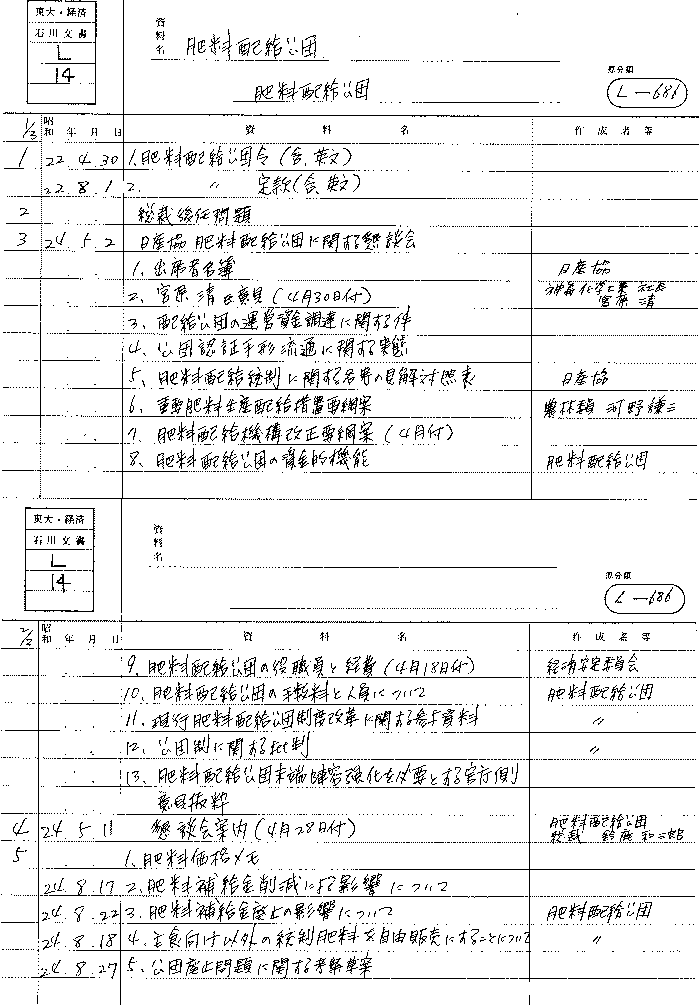 東大・経済
石川文書
L
14
資料名 肥料配給公団
肥料配給公団
原分類
L-686
1/3 昭和 年 月 日 資料名 作成者等
1 22 4.30 1.肥料配給公団令(含、英文)
22.8.1 2. 〃 定款(含、英文)
2 総裁後任問題
3 24 5.2 日産協 肥料配給公団に関する懇談会
1、出席者名簿 日産協
2、宮原清氏意見(4月30日付) 神島化学工業 社長 宮原 清
3、配給公団の運営資金調達に関する件
4、公団認証手形流通に関する実態
5、肥料配給統制に関する各界の見解対照表 日産協
6、重要肥料生産配給措置要綱案 農林技官 河野謙三
7、肥料配給機構改正要綱案(4月付)
8、肥料配給公団の資金的機能 肥料配給公団
東大・経済
石川文書
L
14
資料名
原分類
L-686
2/3 昭和 年 月 日 資料名 作成者等
9、肥料配給公団の役職員と経費(4月18日付) 経済安定委員会
10、肥料配給公団の手数料と人員について 肥料配給公団
11、現行肥料配給公団制度改革に関する参考資料 〃
12、公団制に関する批判 〃
13、肥料配給公団末端陣容強化を必要とする官庁側
意見抜粋
4 24 5 11 懇談会案内(4月28日付) 肥料配給公団 総裁 鈴鹿
5 1、肥料価格メモ
24.8.17 2、肥料補給金削減による影響について
24.8.22 3、肥料補給金廃止の影響について 肥料配給公団
24.8.18 4、主食向け以外の統制肥料を自由販売にすることについて 〃
24.8.27 5、公団廃止問題に関する考察草案